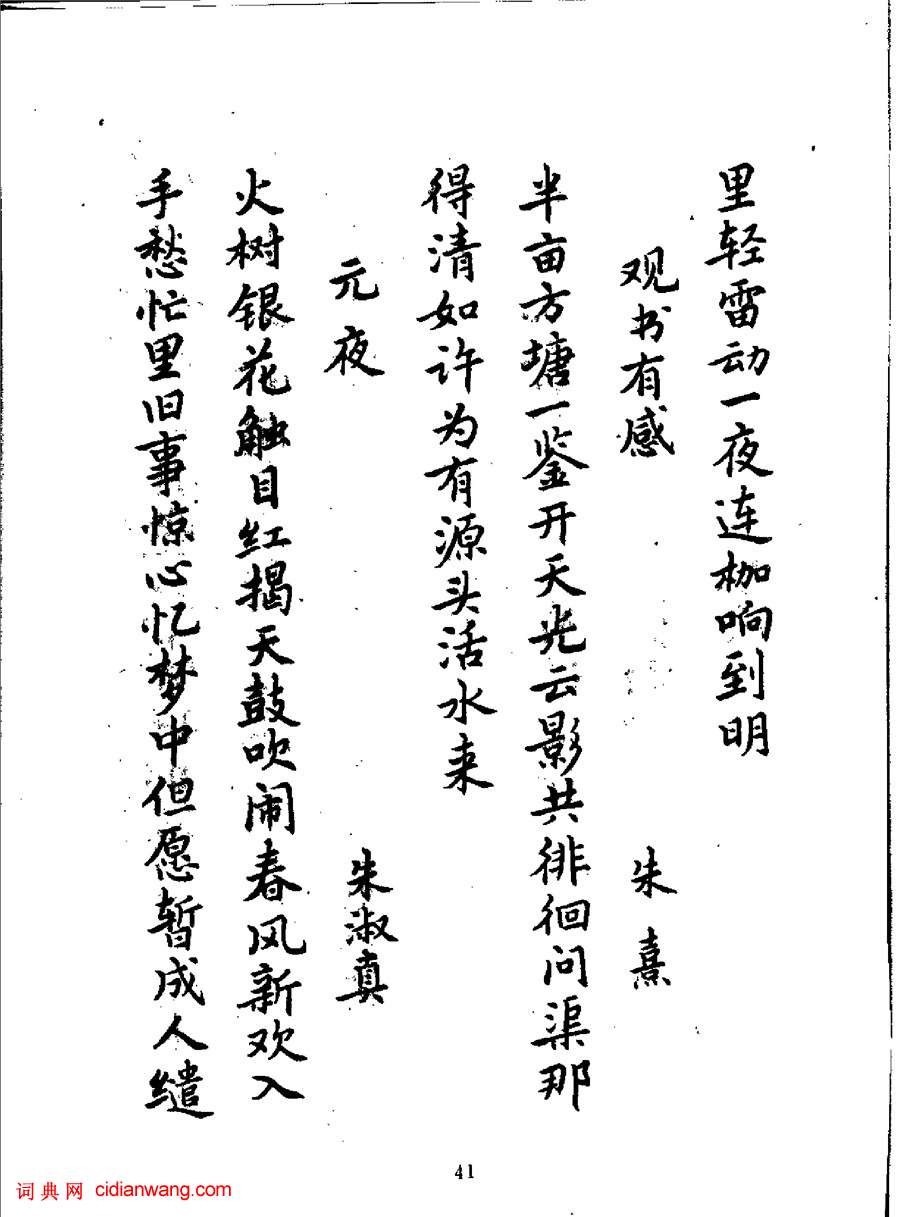 里轻雷动一夜连枷响到明
观书有感 朱熹
半亩方塘一鉴开天光云影共徘徊问渠那
得清如许为有源头活水来
元夜 朱淑真
火树银花触目红揭天鼓吹闹春风新欢入
手愁忙里旧事惊心忆梦中但愿暂成人缱
41
词典网 cidianwang.com